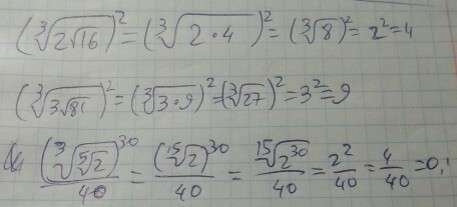 (∛(2√16))² = (∛(2·4))² = (∛8)² = 2² = 4
(∛(3√81))² = (∛(3·9))² = (∛27)² = 3² = 9
(∛(⁵√2))³⁰/40 = (¹⁵√2)³⁰/40 = ¹⁵√(2³⁰)/40 = 2²/40 = 4/40 = 0,1